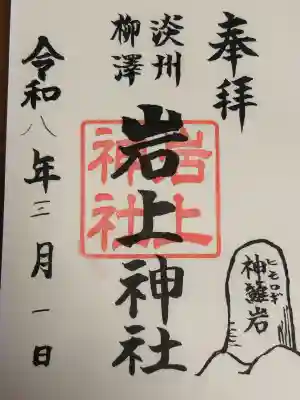 奉拝
淡州
柳澤
岩上神社
岩上
神社
令和八年三月一日
神籬岩
ヒモロギ